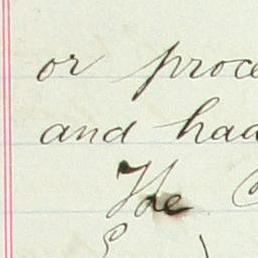 or proce
and had
The